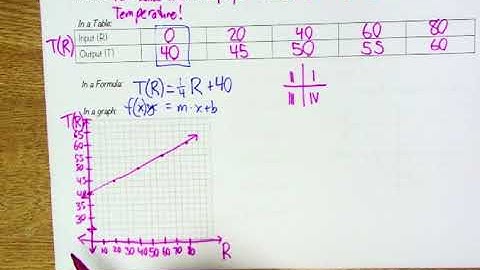 Temperature!
In a Table:
T(R) Input (R) 0 20 40 60 80
Output (T) 40 45 50 55 60
In a Formula: T(R) = 1/4 R + 40
f(x) = m·x+b
II I
III IV
In a graph:
T(R)
65
60
55
50
45
40
35
30
10 20 30 40 50 60 70 80 R